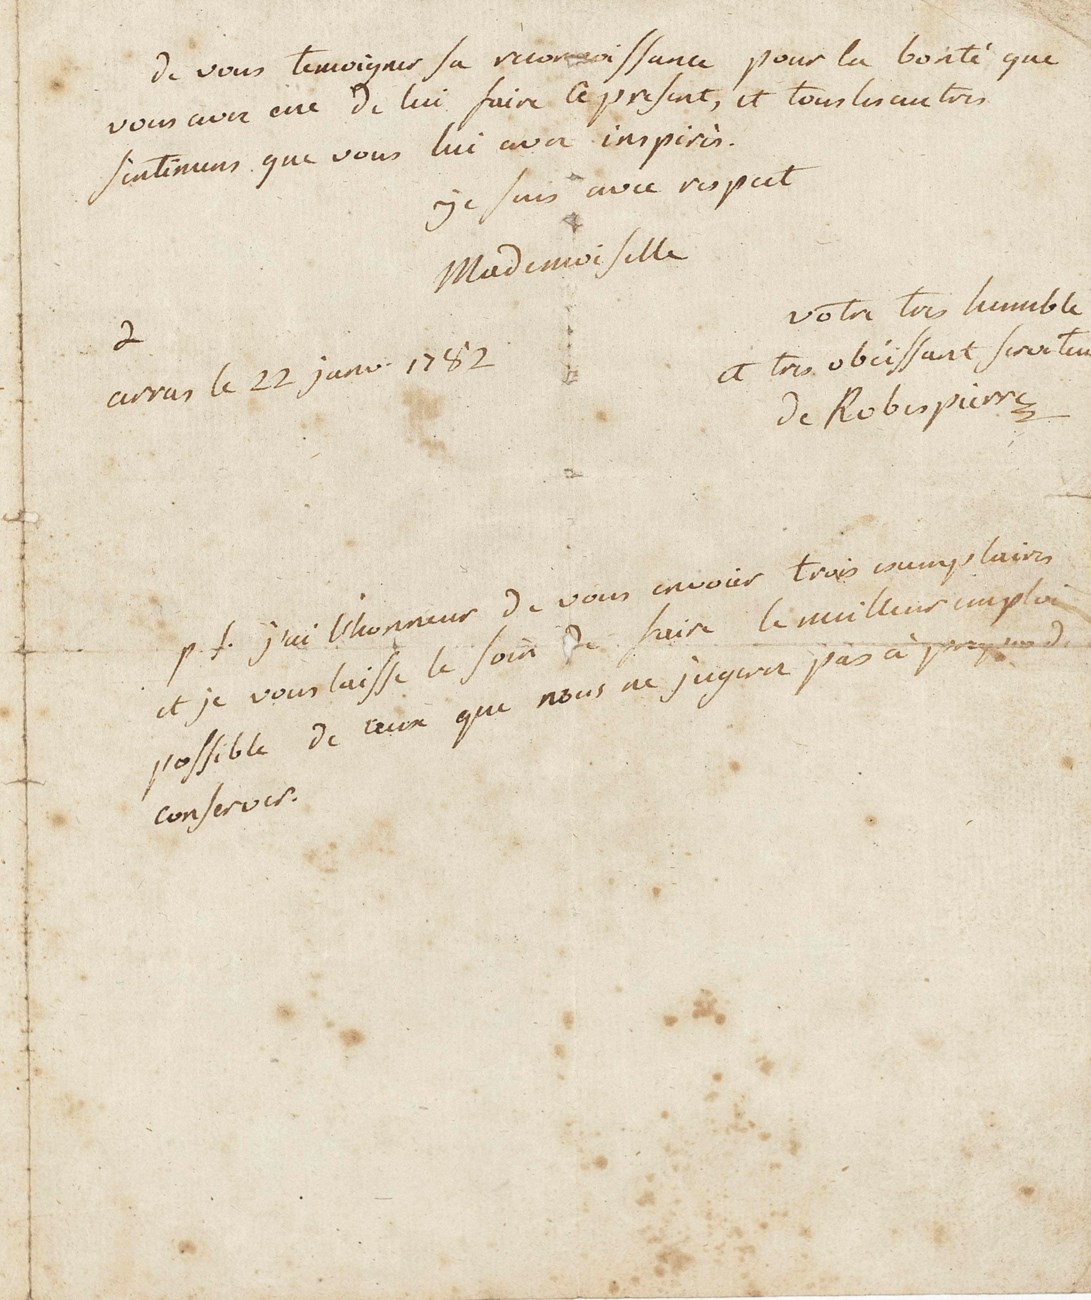 de vous temoigner sa reconnoissance pour la bonté que
vous avez eue de lui faire ce present, et tous les autres
sentimens que vous lui avez inspirés.
je suis avec respect
Mademoiselle
votre tres humble
2
et tres obéissant serviteu
arras le 22 janv. 1782
de Robespierre
p s. j'ai l'honneur de vous envoier trois exemplaires
et je vous laisse le soin de faire le meilleur emploi
possible de ceux que vous ne jugerez pas à propos de
conserver.